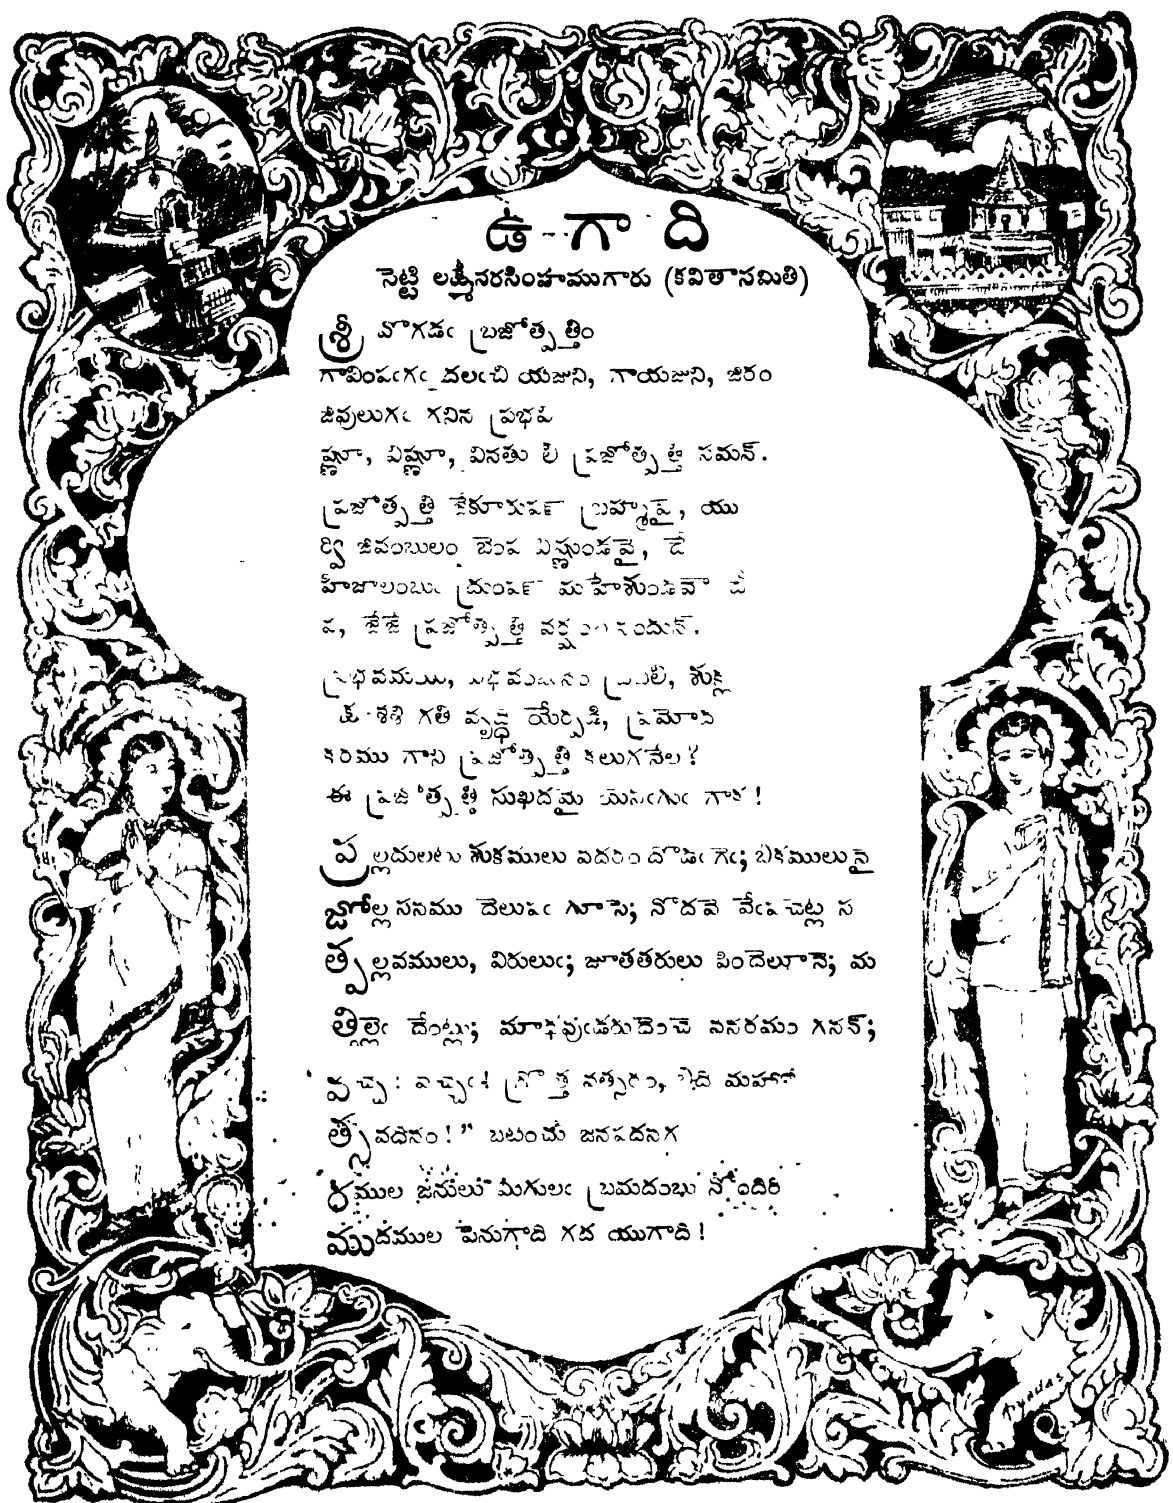 ఉగాది
సెట్టి లక్ష్మీనరసింహముగారు (కవితాసమితి)
శ్రీ వొగడఁ బ్రజోత్పత్తిం
గావింపఁగఁ దలఁచి యజుని, గాయజుని, జిరం
జీవులుగఁ గనిన ప్రభవి
ష్ణూ, విష్ణూ, వినతు లి ప్రజోత్పత్తి సమన్.
ప్రజోత్పత్తి బ్రహ్మవై, యు
ర్వి జీవంబులం బెంప విష్ణుండవై, దే
హిజాలంబుఁ ద్రుంపన్ మహేశుండవౌ
జేజే ప్రజోత్పత్తి
శుక్ల
శశి గతి వృద్ధి యేర్పడి, ప్రమోద
కరము గాని ప్రజోత్పత్తి కలుగనేల?
ఈ ప్రజోత్పత్తి సుఖదమై యెసఁగుఁ గాక!
ప్రల్లదులటు శుకములు వదరం దొడఁ గెఁ; బికములునై
జ్జోల్లసనము దెలుపఁ గూసె; నొదవె వేఁపచెట్ల స
త్పల్లవములు, విరులుఁ; జూతతరులు పిందెలూనె; మ
త్తిల్లెఁ దేంట్లు; మాధవుఁడరుదెంచె వనరమం గనన్;
వచ్చె! వచ్చెఁ గ్రొత్త వత్సరం, మహో
త్సవదినం!” బటంచు జనపదనగ
రముల జనులు మిగులఁ బ్రమదంబు నొందిరి
ముదముల పెనుగాది గద యుగాది!